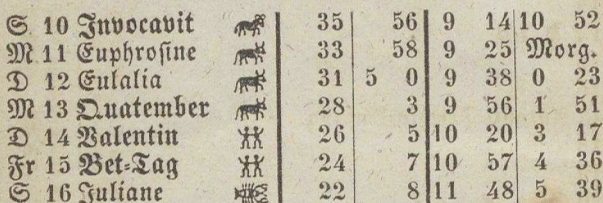 S 10 Invocavit 35 56 9 14 10 52
M 11 Euphroſine 33 58 9 25 Morg.
D 12 Eulalia 31 5 0 9 38 0 23
M 13 Quatember 28 3 9 56 1 51
D 14 Valentin 26 5 10 20 3 17
Fr 15 Bet-Tag 24 7 10 57 4 36
S 16 Juliane 22 8 11 48 5 39